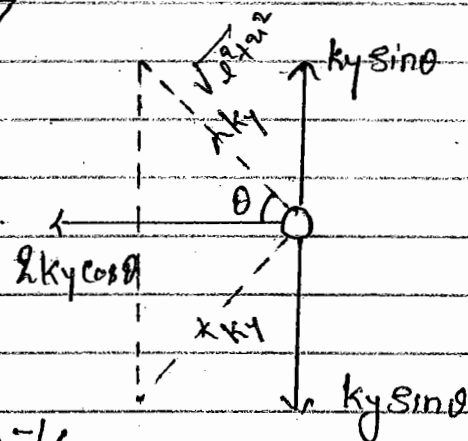 √l²+x²
ky sinθ
ky
θ
2ky cosθ
ky
ky sinθ